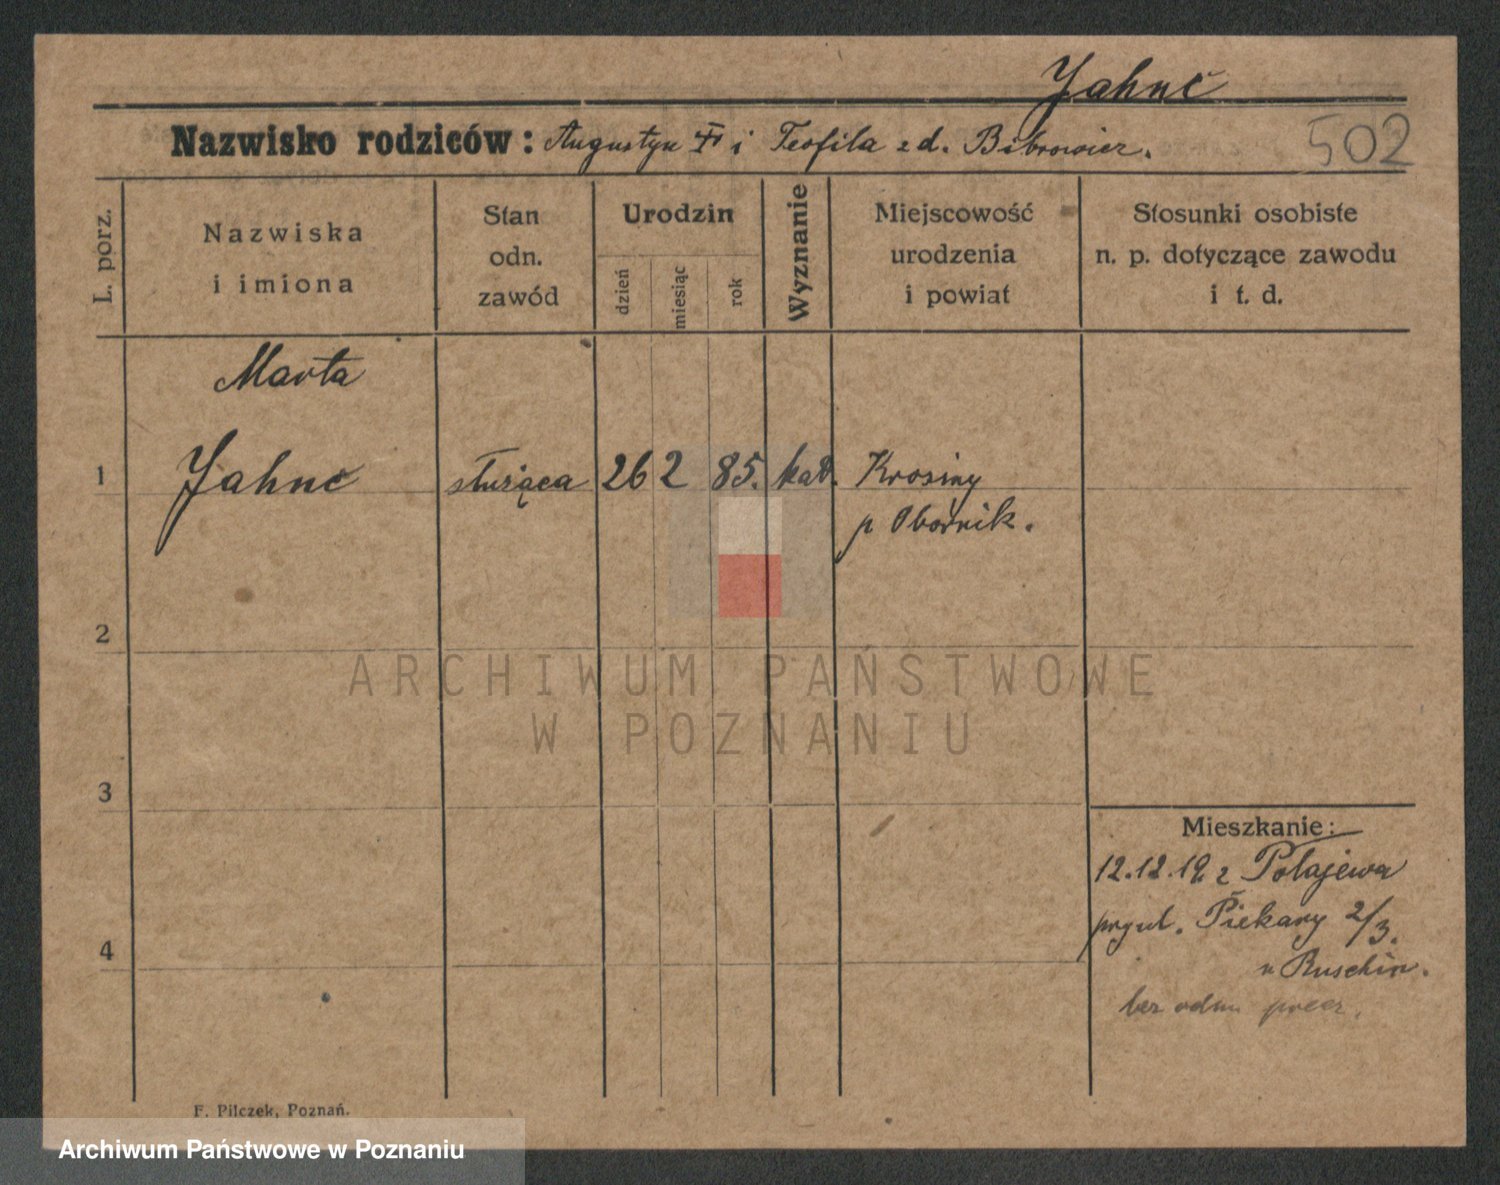 Jahnc
Nazwisko rodziców: Augustyn i Teofila z d. Bibrowicz.
502
L. porz.
Nazwiska
i imiona
Stan
odn.
zawód
Urodzin
dzień
miesiąc
rok
Wyznanie
Miejscowość
urodzenia
i powiat
Stosunki osobiste
n. p. dotyczące zawodu
i t. d.
Marta
1 Jahnc służąca 26 2 85. kat. Krosiny
p Obornik.
2
3
4
Mieszkanie:
12.12.19 z Połajewa
Piekary 2/3.
u Ruschin.
bez odm
F. Pilczek, Poznań.
ARCHIWUM PAŃSTWOWE
W POZNANIU
Archiwum Państwowe w Poznaniu